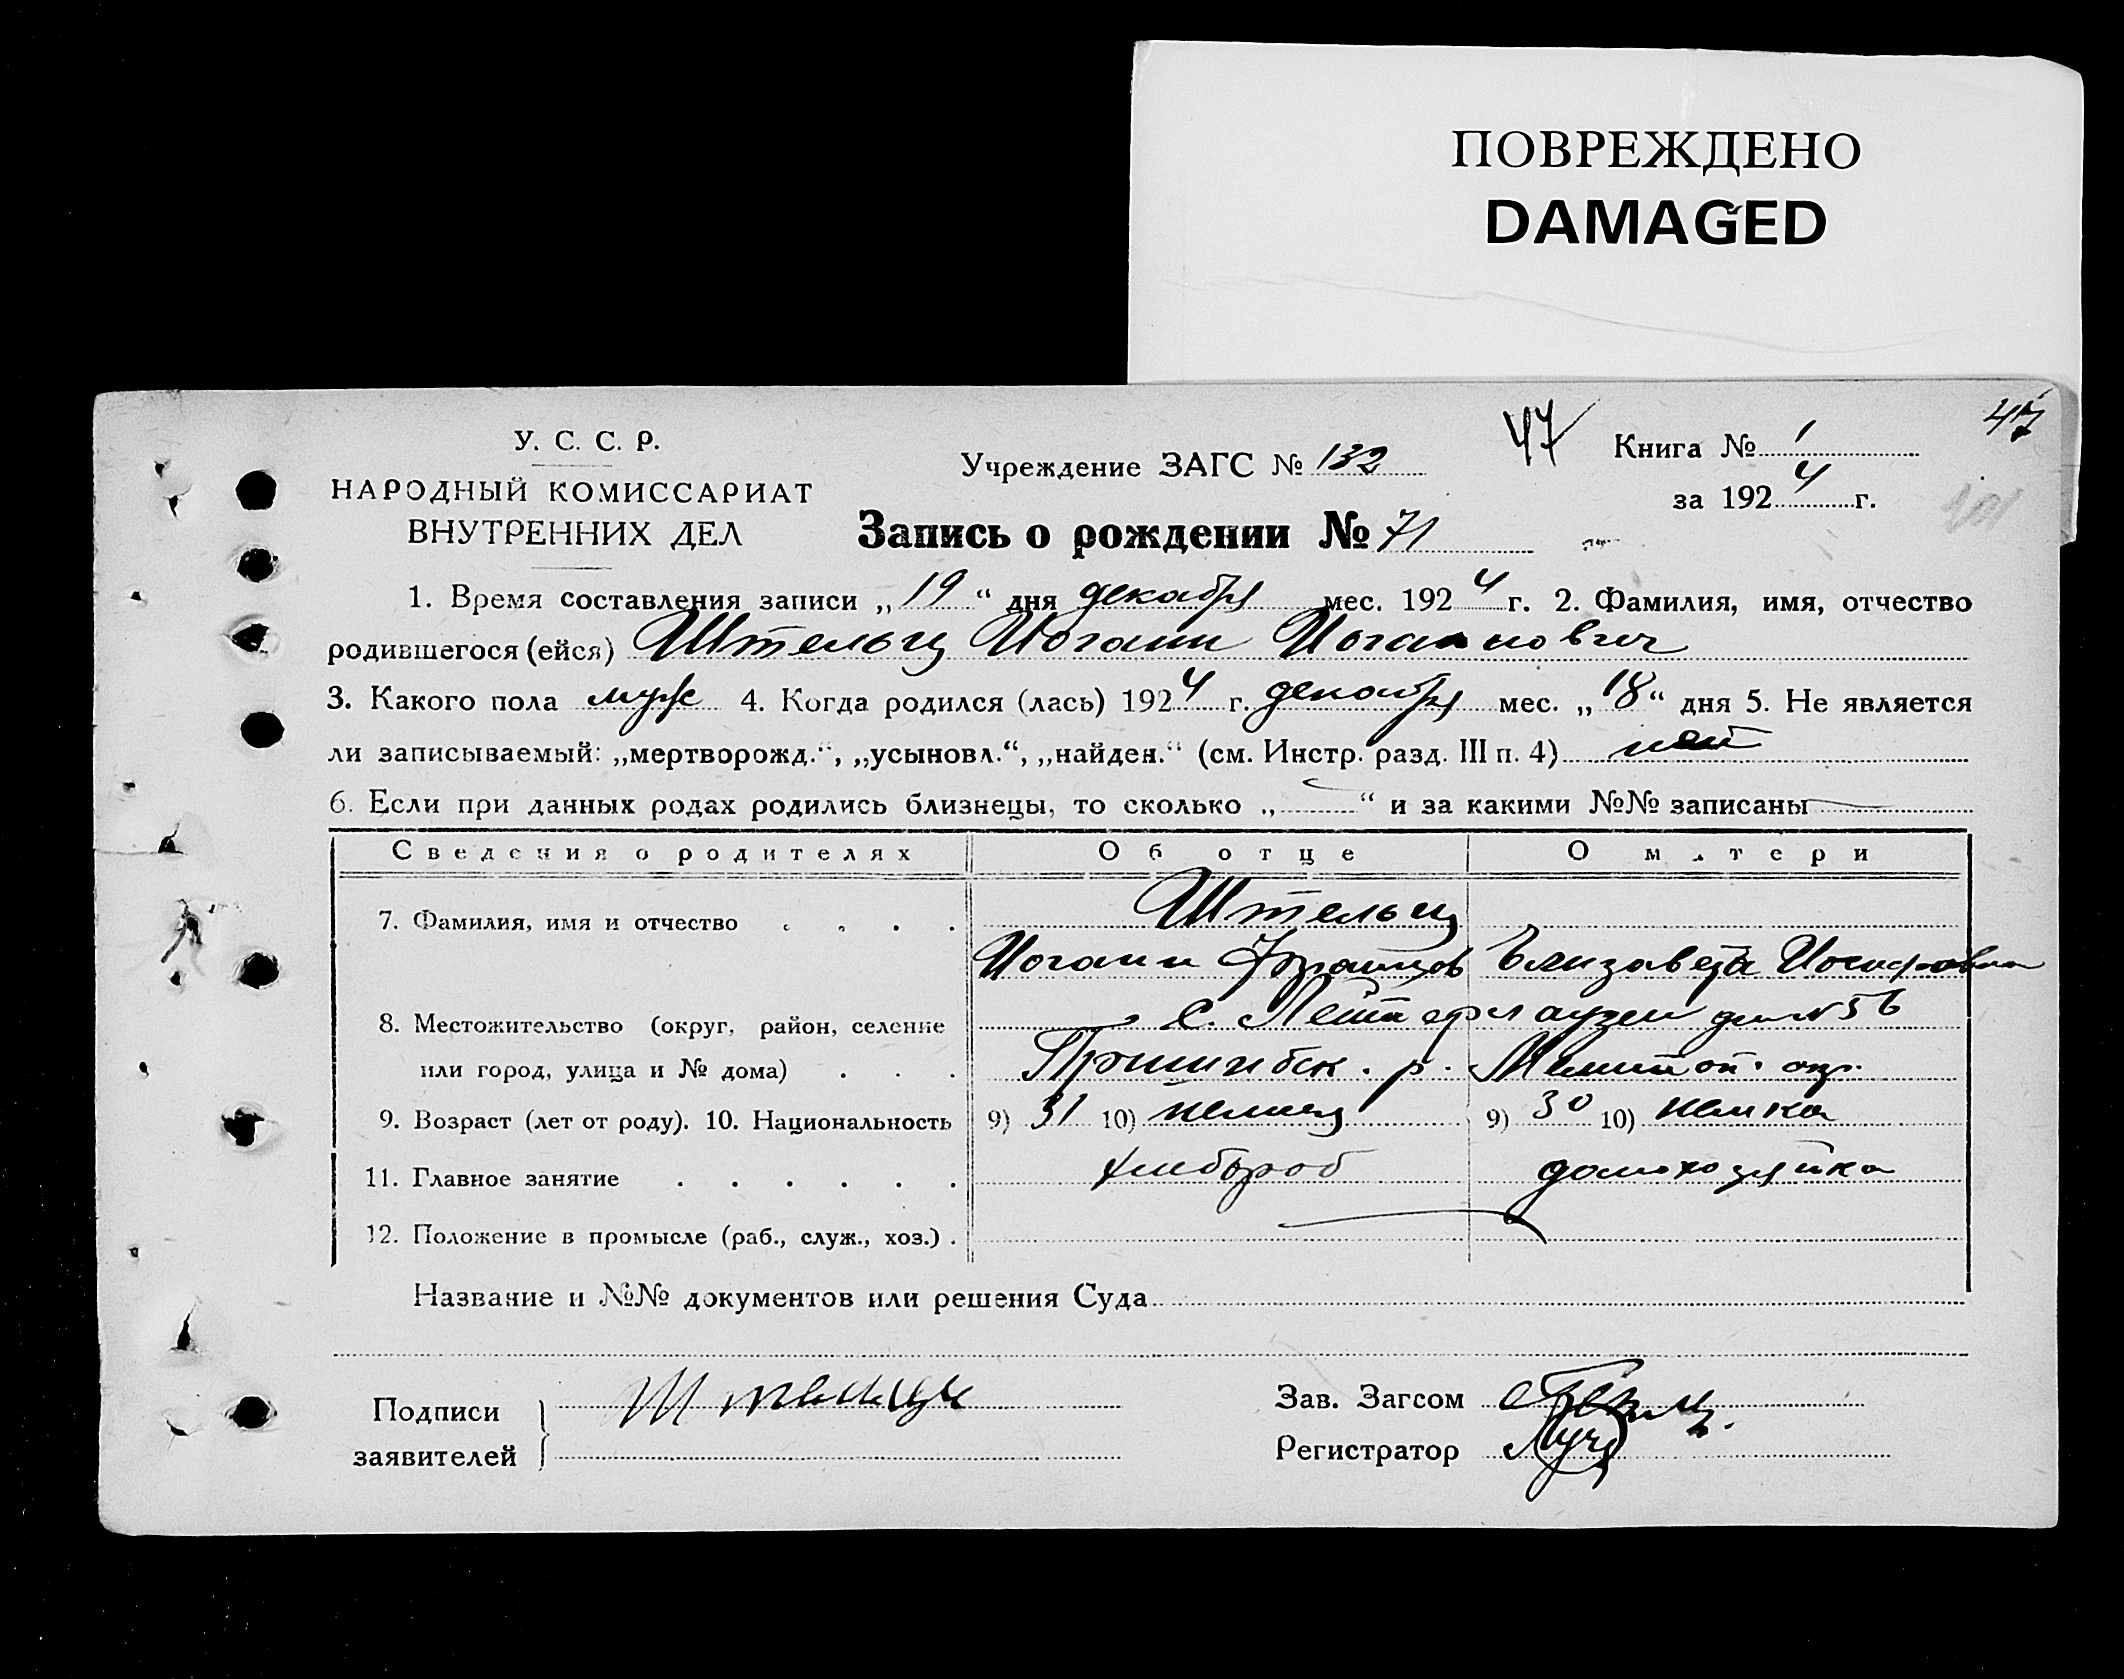 ПОВРЕЖДЕНО
DAMAGED
47
47
У. С. С. Р.
НАРОДНЫЙ КОМИССАРИАТ
ВНУТРЕННИХ ДЕЛ
Учреждение ЗАГС № 132
Книга № 1
за 1924 г.
Запись о рождении № 71
1. Время составления записи „19“ дня декабря мес. 1924 г. 2. Фамилия, имя, отчество
родившегося (ейся) Штельц Иоганн Иоганнович
3. Какого пола муж 4. Когда родился (лась) 1924 г. декабря мес. „18“ дня 5. Не является
ли записываемый: „мертворожд.“, „усыновл.“, „найден.“ (см. Инстр. разд. III п. 4) нет
6. Если при данных родах родились близнецы, то сколько „ “ и за какими №№ записаны
Сведения о родителях Об отце О матери
7. Фамилия, имя и отчество Штельц
Иоганн Францов Елизавета Иосифовна
8. Местожительство (округ, район, селение с. Лейтерсгаузен дом № 56
или город, улица и № дома) Пришибск. р. Мелитоп. окр.
9. Возраст (лет от роду). 10. Национальность 9) 31 10) немец 9) 30 10) немка
11. Главное занятие хлебороб домохозяйка
12. Положение в промысле (раб., служ., хоз.)
Название и №№ документов или решения Суда
Подписи
заявителей
Зав. Загсом
Регистратор